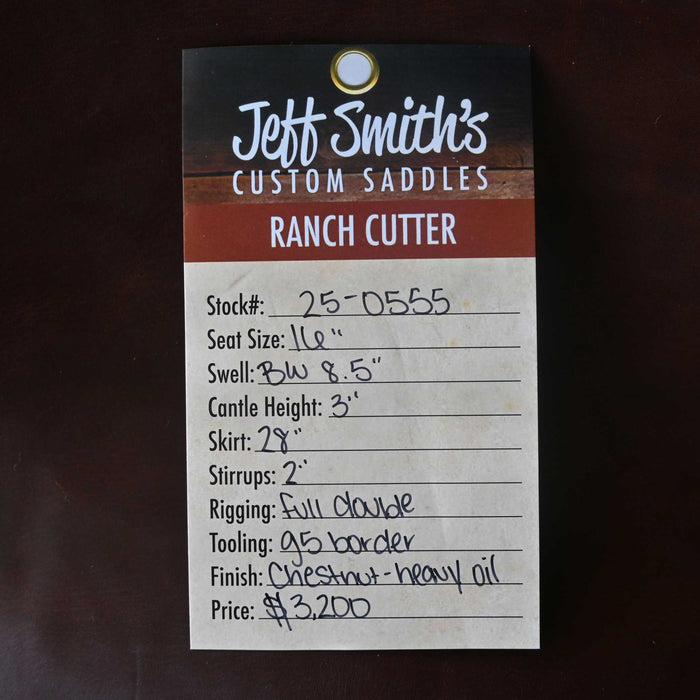 Jeff Smith's
CUSTOM SADDLES
RANCH CUTTER
Stock#: 25-0555
Seat Size: 16"
Swell: BW 8.5"
Cantle Height: 3"
Skirt: 28"
Stirrups: 2"
Rigging: full double
Tooling: g5 border
Finish: Chestnut-heavy oil
Price: $3,200